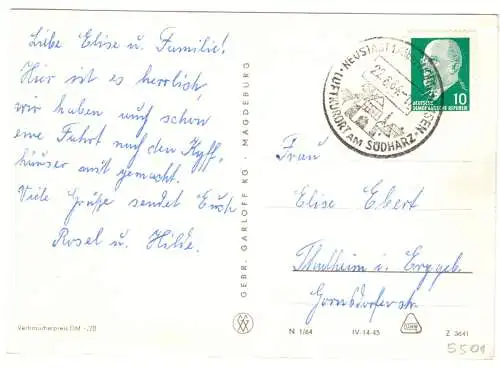 Liebe Elise u. Familie!
Hier ist es herrlich,
wir haben auch schon
eine Fahrt nach den Kyff-
häuser mit gemacht.
Viele Grüße sendet Euch
Rosel u. Hilde.
Verbraucherpreis DM -,20
GEBR. GARLOFF KG - MAGDEBURG
NEUSTADT
LUFTKURORT AM SÜDHARZ
DEUTSCHE
DEMOKRATISCHE REPUBLIK
10
Frau
Elise Ebert
Thalheim i. Erzgeb.
Gornsdorferstr
N 1/64 IV-14-45 Z 3641
5501